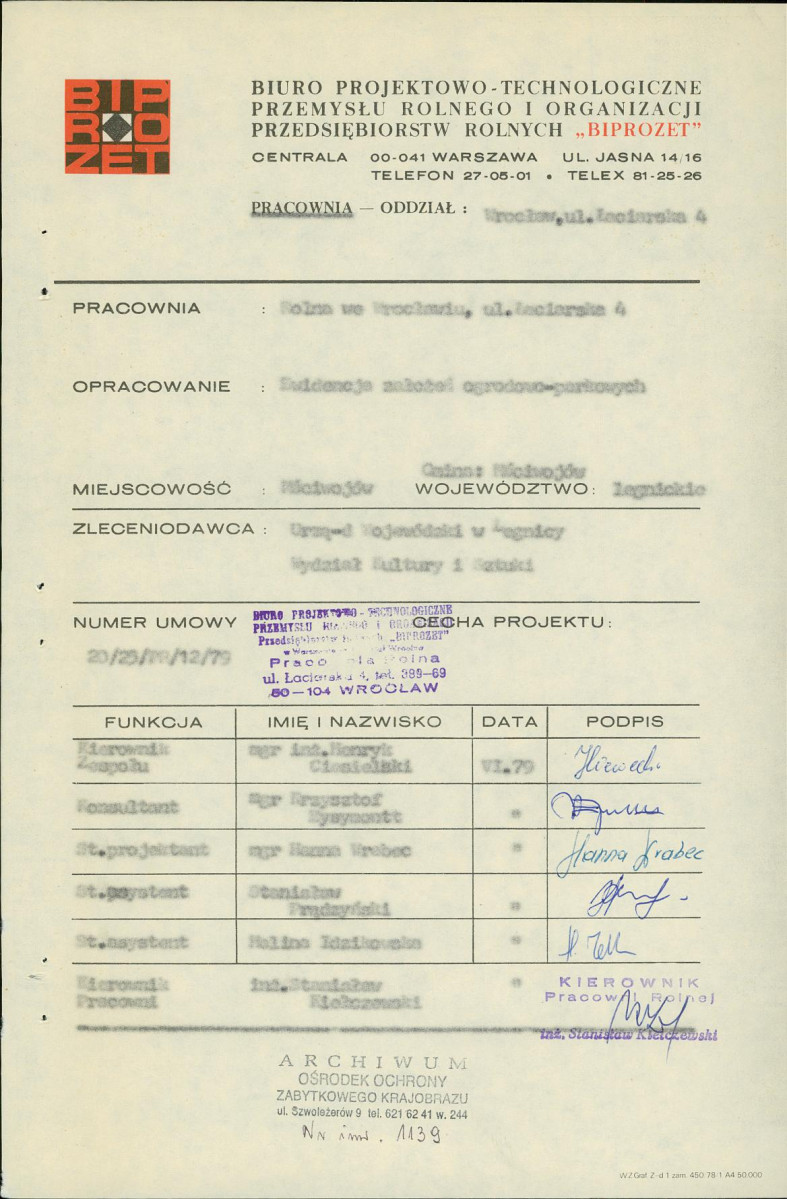 BIPROZET
BIURO PROJEKTOWO-TECHNOLOGICZNE
PRZEMYSŁU ROLNEGO I ORGANIZACJI
PRZEDSIĘBIORSTW ROLNYCH „BIPROZET”
CENTRALA 00-041 WARSZAWA UL. JASNA 14/16
TELEFON 27-05-01 • TELEX 81-25-26
PRACOWNIA — ODDZIAŁ : Wrocław,ul.Łaciarska 4
PRACOWNIA : Rolna we Wrocławiu, ul.Łaciarska 4
OPRACOWANIE : Ewidencja założeń ogrodowo-parkowych
Gmina: Mściwojów
MIEJSCOWOŚĆ : Mściwojów WOJEWÓDZTWO: legnickie
ZLECENIODAWCA : Urząd Wojewódzki w Legnicy
Wydział Kultury i Sztuki
NUMER UMOWY CECHA PROJEKTU:
BIURO PROJEKTOWO-TECHNOLOGICZNE
PRZEMYSŁU ROLNEGO I
„BIPROZET”
Pracownia Rolna
ul. Łaciarska 4, tel. 389-69
50-104 WROCŁAW
FUNKCJA IMIĘ I NAZWISKO DATA PODPIS
Kierownik mgr inż.Henryk
Zespołu Ciesielski VI.79
Konsultant mgr Krzysztof "
St.projektant mgr Hanna Wrabec " Hanna Wrabec
St.asystent Stanisław "
Prądzyński
St.asystent Halina Idzikowska "
Kierownik inż.Stanisław "
Pracowni Kiełczewski
KIEROWNIK
Pracowni Rolnej
inż. Stanisław Kiełczewski
ARCHIWUM
OŚRODEK OCHRONY
ZABYTKOWEGO KRAJOBRAZU
ul. Szwoleżerów 9 tel. 621 62 41 w. 244
Nr inw. 1139
WZGraf. Z-d 1 zam. 450/78/1 A4 50.000